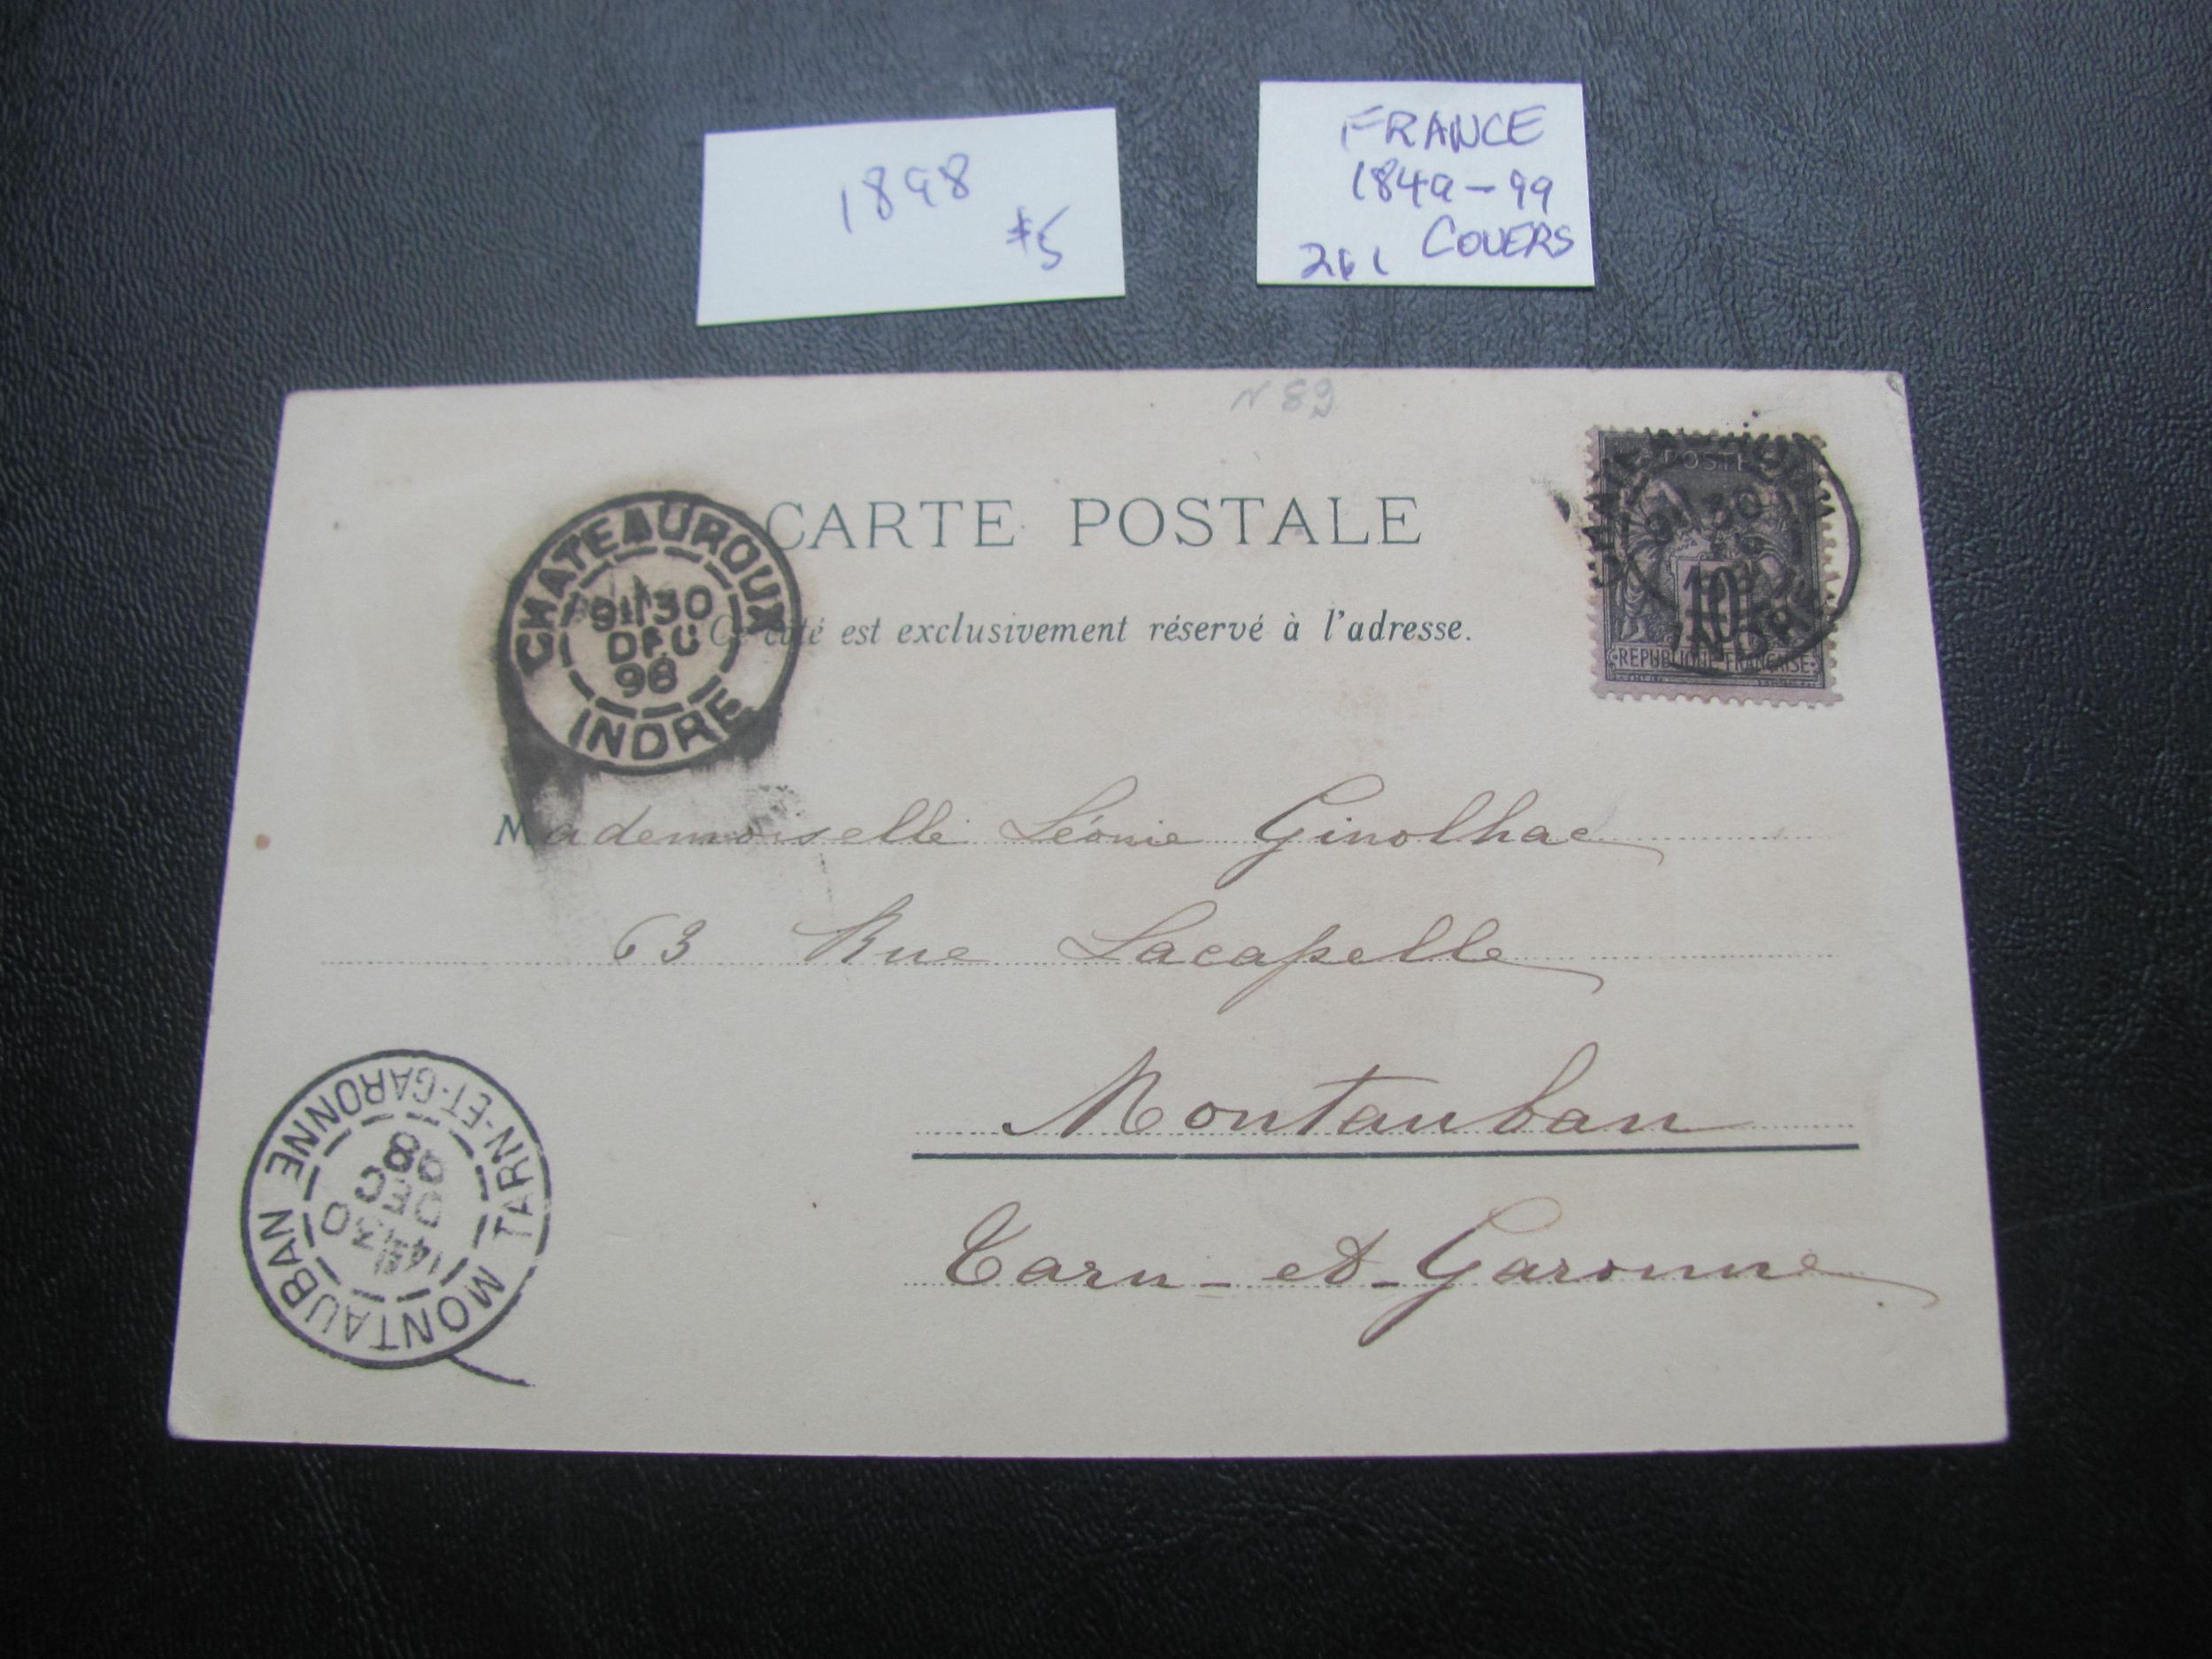 1898
$5
FRANCE
1849-99
COVERS
261
N 89
CARTE POSTALE
Ce côté est exclusivement réservé à l'adresse.
CHATEAUROUX
9H 30
DEC
98
INDRE
POSTE
10
REPUBLIQUE FRANÇAISE
INDRE
Mademoiselle Léonie Ginolhac
63 Rue Lacapelle
Montauban
Tarn-et-Garonne
MONTAUBAN
14H 30
DEC
98
TARN-ET-GARONNE